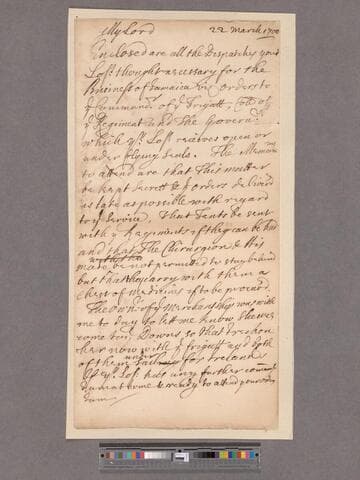 My Lord 22 March 1700
Enclosed are all the Dispatches your
Losp. thought necessary for the
Business of Jamaica viz Orders to
ye Command. of ye Frigatt, Coll of
ye Regiment and The Govern.
which yr. Losp. receives open or
under flying Seale. The Memm.
to attend are that This matter
be kept Secrett & ye orders deliverd
as late as possible with regard
to ye Service, That Tents be sent
with ye Regiment if they can be had
and that The Chirurgion & His
mate be not permitted to stay behind
but that they carry with them a
Chest of medicins if to be procurd.
The Own. of ye Merchantship was with
me to day to lett me know She was
come to ye Downs so that I reckon
her now with ye frigatt and both
of them under Saile for Ireland
If yr. Losp. has any further
I am at home & ready to attend